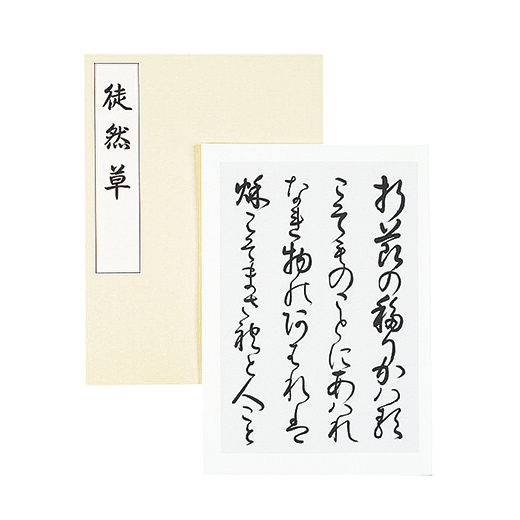 徒然草
折節の移りかハる
こそものことにあハれ
なれ物のあはれは
秋こそまされと人こと